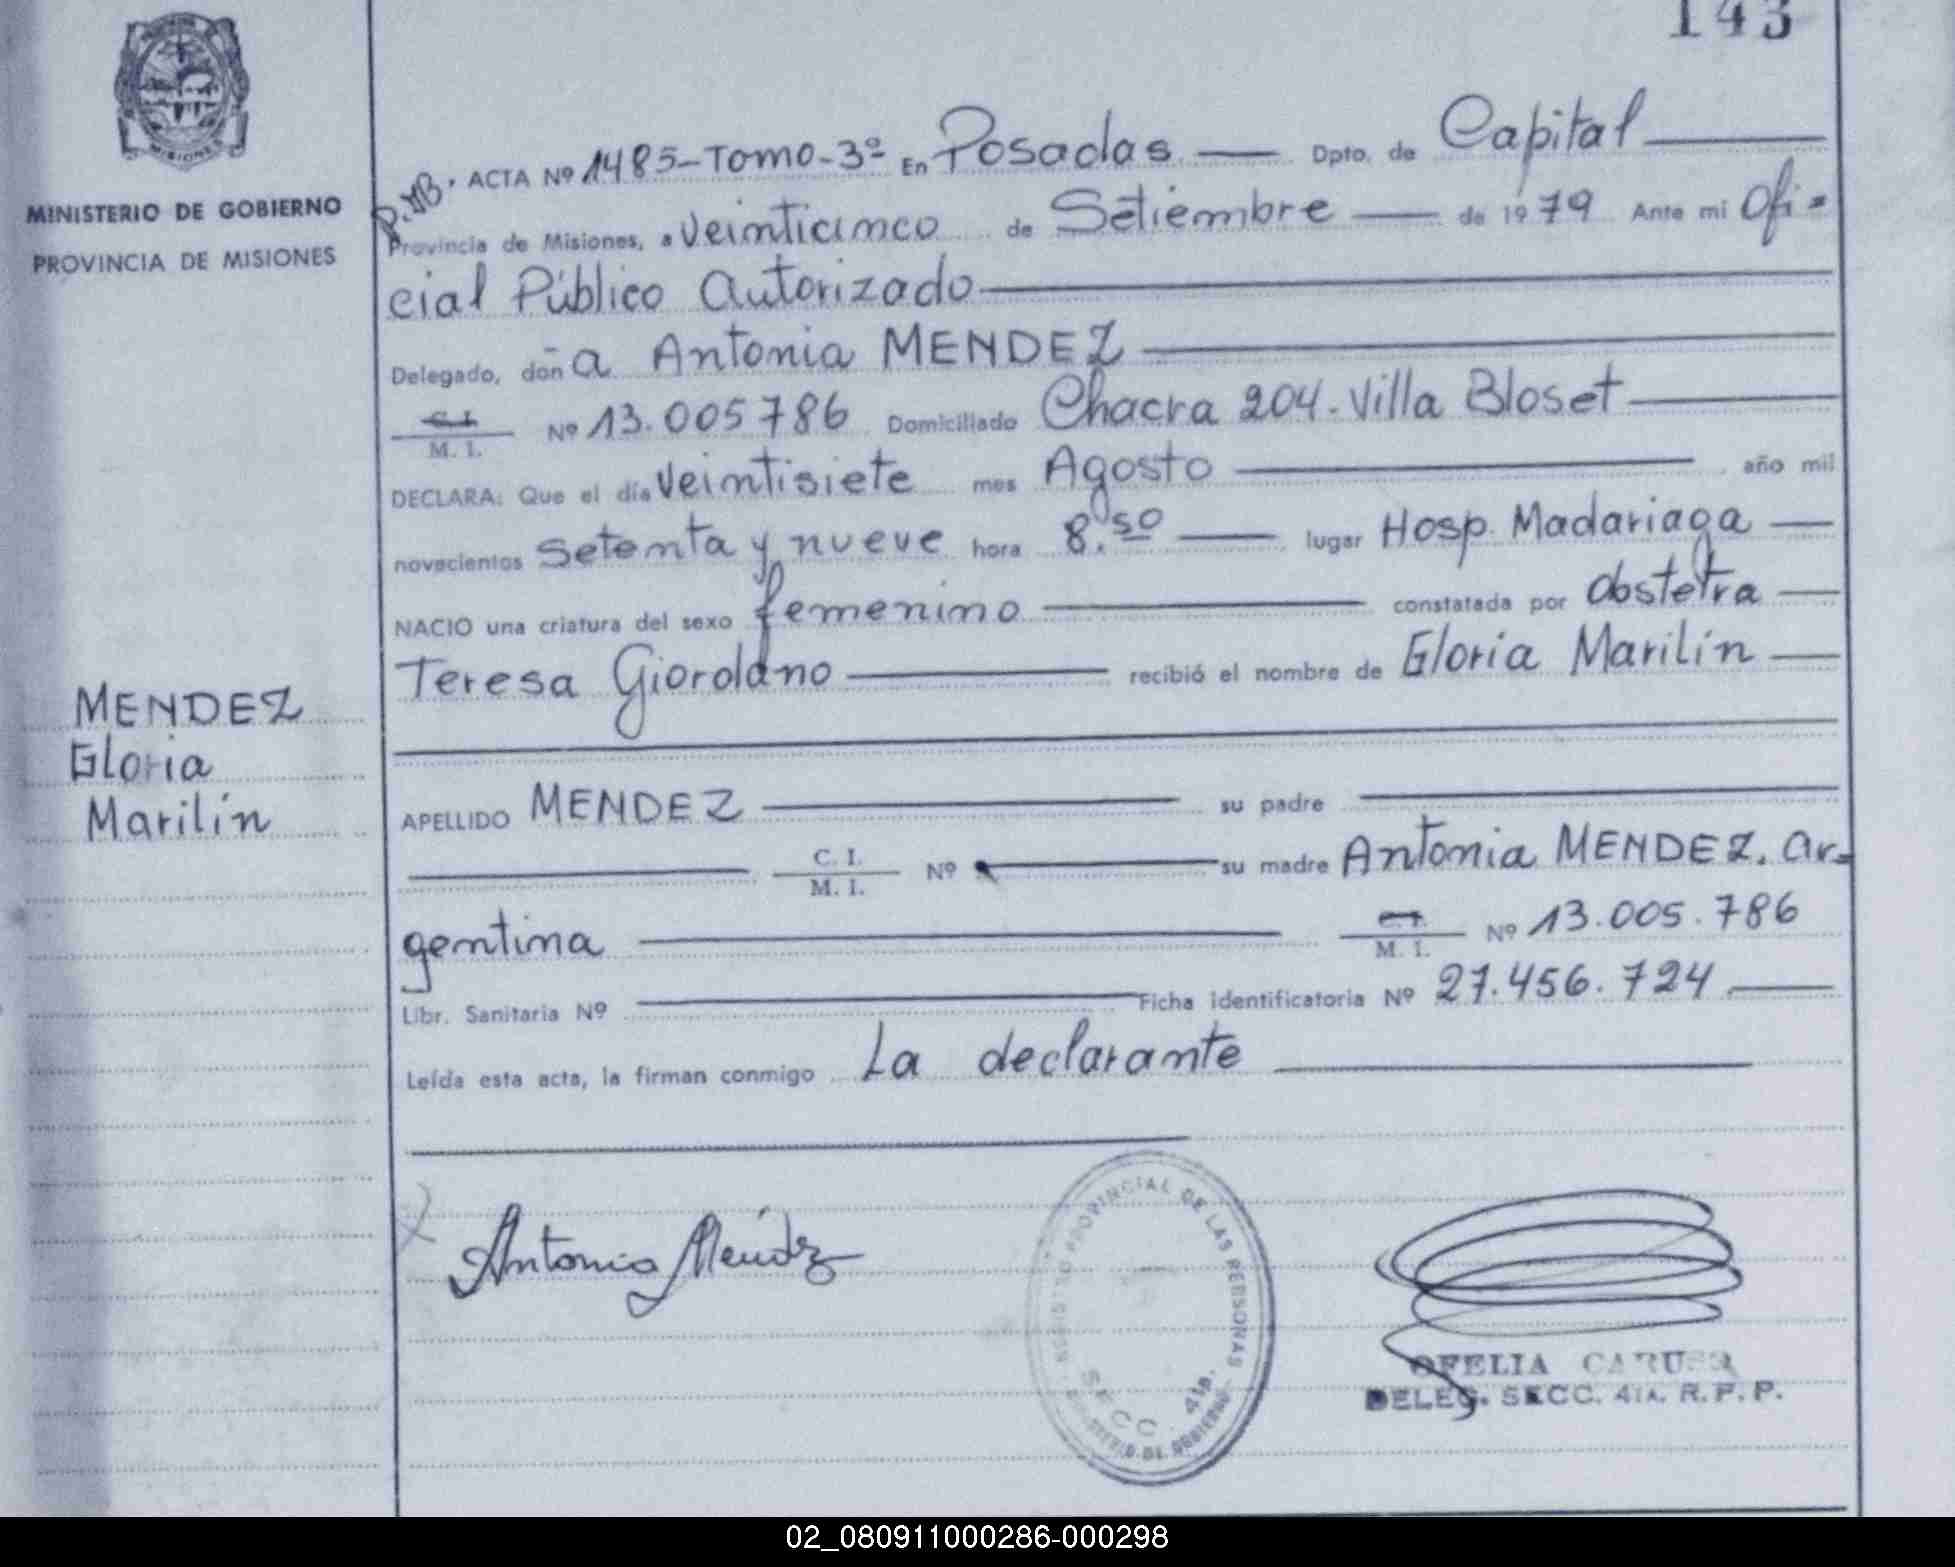 143
MISIONES
MINISTERIO DE GOBIERNO
PROVINCIA DE MISIONES
MENDEZ
Gloria
Marilín
P.MB. ACTA Nº 1485-Tomo-3º En Posadas Dpto. de Capital
Provincia de Misiones, a veinticinco de Setiembre de 1979 Ante mi Ofi=
cial Público Autorizado
Delegado, doña Antonia MENDEZ
C.I. / M. I. Nº 13.005786 Domiciliado Chacra 204-Villa Bloset
DECLARA: Que el día veintisiete mes Agosto año mil
novecientos setenta y nueve hora 8.50 lugar Hosp. Madariaga
NACIO una criatura del sexo femenino constatada por Obstetra
Teresa Giordano recibió el nombre de Gloria Marilín
APELLIDO MENDEZ su padre
C. I. / M. I. Nº su madre Antonia MENDEZ. ar=
gentina C.I. / M. I. Nº 13.005.786
Libr. Sanitaria Nº Ficha identificatoria Nº 27.456.724
Leída esta acta, la firman conmigo La declarante
Antonia Mendez
REGISTRO PROVINCIAL DE LAS PERSONAS
SECC. 4ta.
MINISTERIO DE GOBIERNO
OFELIA CARUSO
DELEG. SECC. 4TA. R. P. P.
02_080911000286-000298